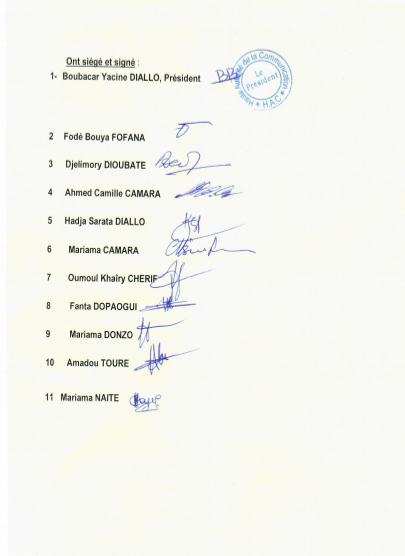 Ont siégé et signé :
1- Boubacar Yacine DIALLO, Président
Haute Autorité de la Communication
Le
Président
★ H.A.C ★
2 Fodé Bouya FOFANA
3 Djelimory DIOUBATE
4 Ahmed Camille CAMARA
5 Hadja Sarata DIALLO
6 Mariama CAMARA
7 Oumoul Khaïry CHERIF
8 Fanta DOPAOGUI
9 Mariama DONZO
10 Amadou TOURE
11 Mariama NAITE